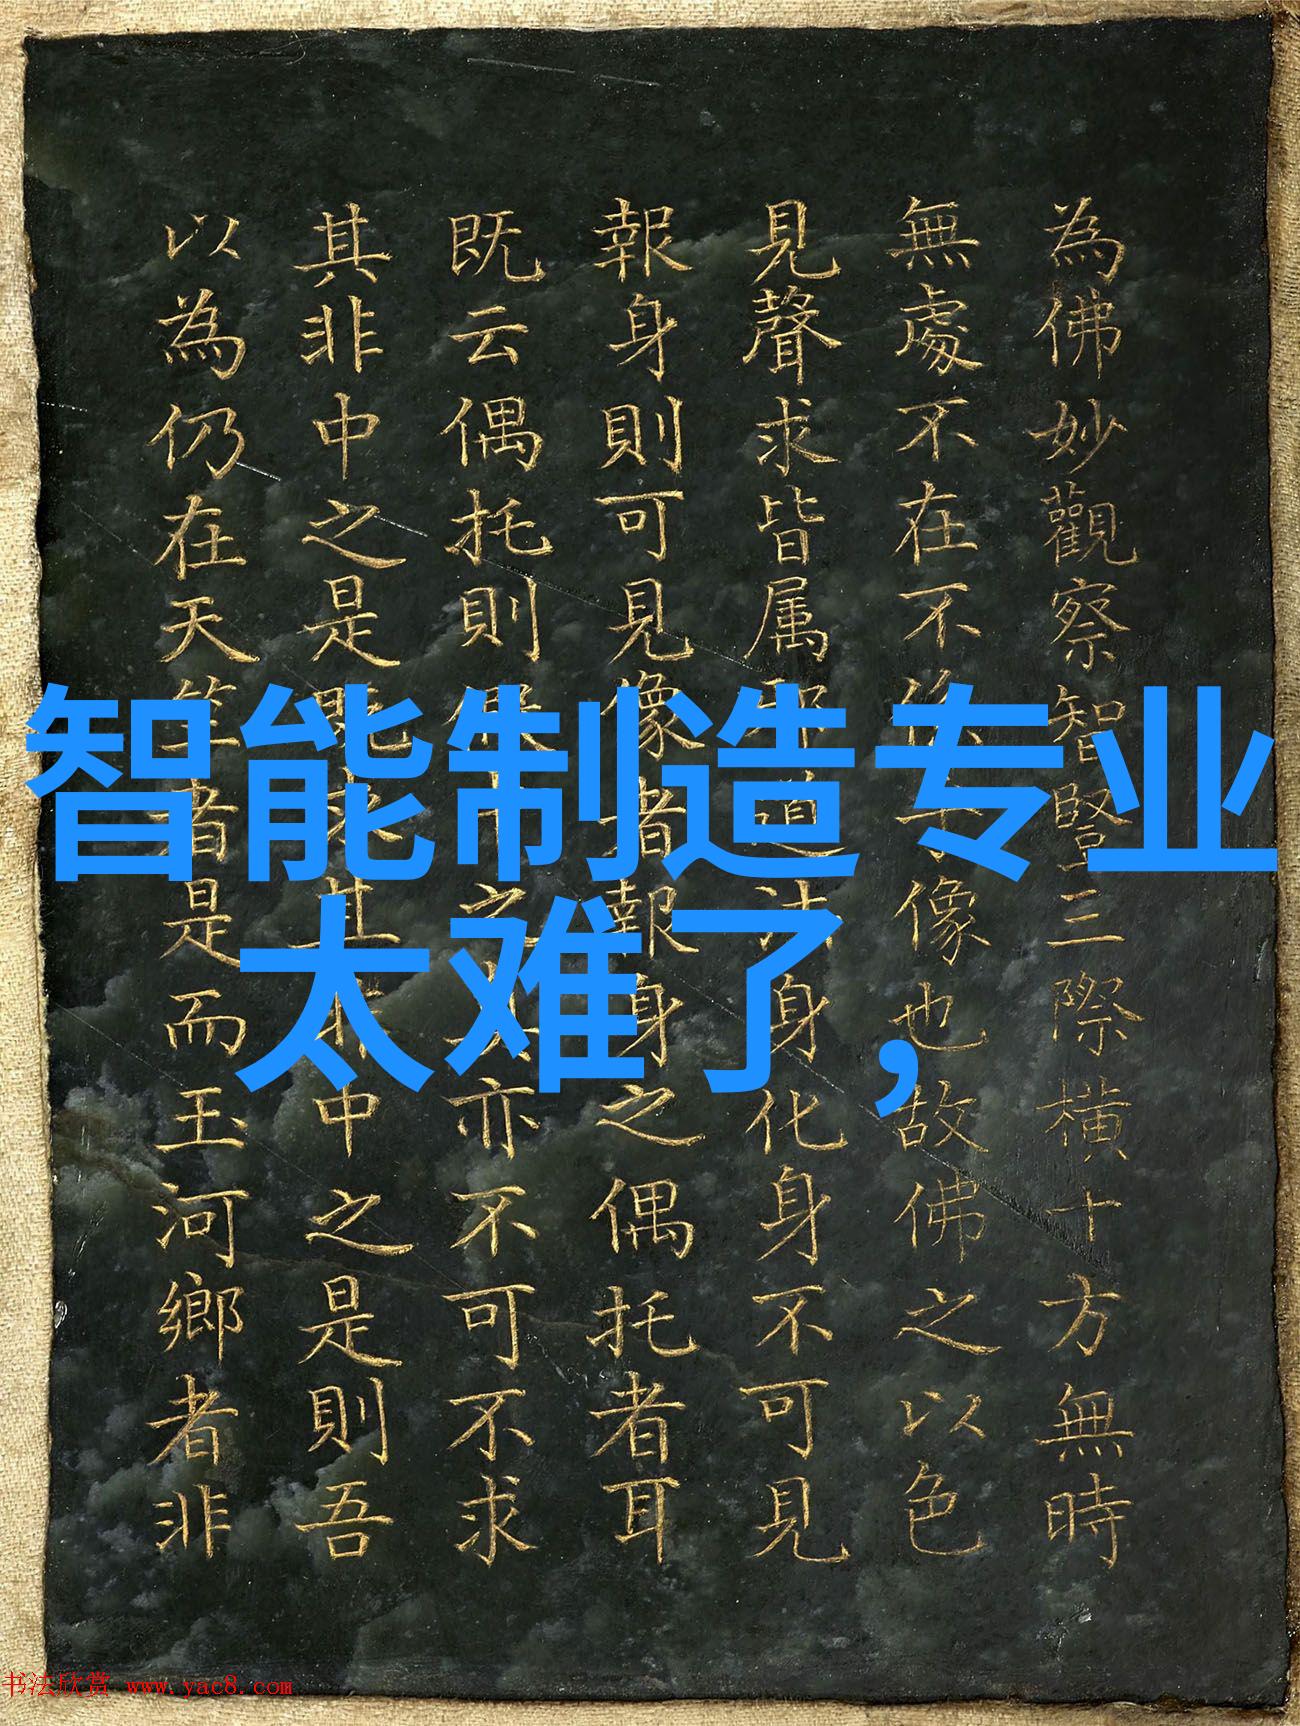 為佛妙觀察智豎三際橫十方無時
無處不在不像也故佛之以色
見聲求皆属邪道法身化身不可見
報身則可見像者報身之偶托者耳
既云偶托則之亦不可不求
其非中之是既求其非中之是則吾
以為仍在天竺者是而玉河鄉者非
智能制造专业
太难了，
书法欣赏 www.yac8.com